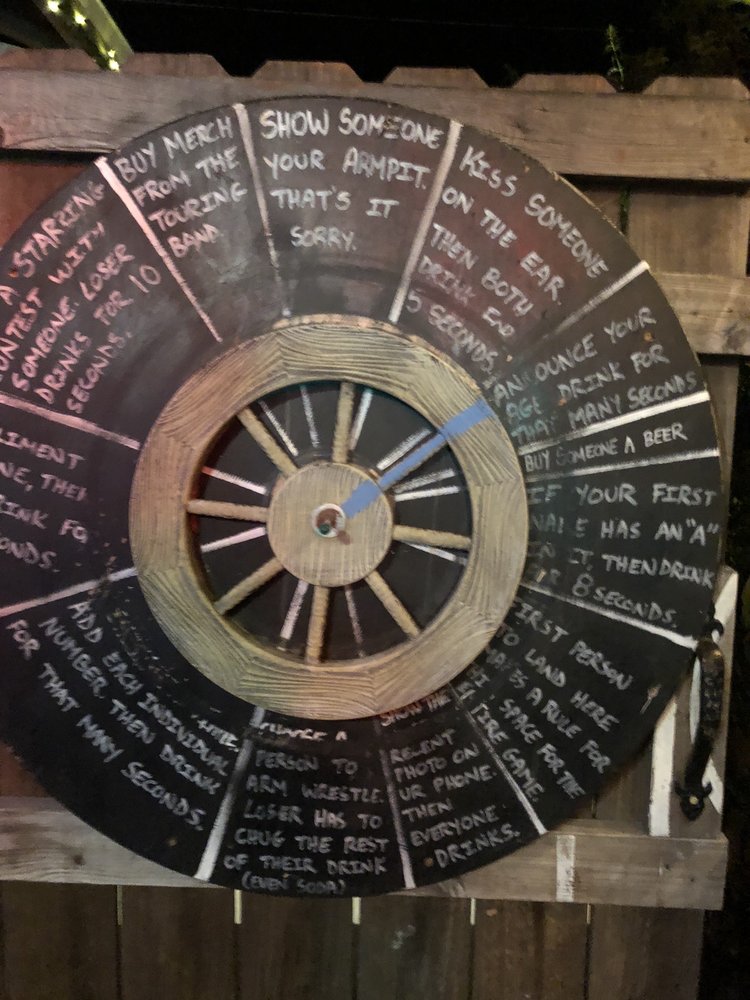 BUY MERCH
FROM THE
TOURING
BAND
SHOW SOMEONE
YOUR ARMPIT.
THAT'S IT
SORRY.
KISS SOMEONE
ON THE EAR.
THEN BOTH
DRINK
5 SECONDS.
ANNOUNCE YOUR
AGE DRINK FOR
THAT MANY SECONDS
BUY SOMEONE A BEER
IF YOUR FIRST
HAS AN "A"
IN IT, THEN DRINK
FOR 8 SECONDS.
FIRST PERSON
TO LAND HERE
MAKES A RULE FOR
SPACE FOR THE
GAME.
SHOW THE
RECENT
PHOTO ON
UR PHONE.
THEN
EVERYONE
DRINKS.
A
PERSON TO
ARM WRESTLE.
LOSER HAS TO
CHUG THE REST
OF THEIR DRINK
(EVEN SODA)
ADD EACH INDIVIDUAL
NUMBER. THEN DRINK
FOR THAT MANY SECONDS.
LIMENT
NE, THEN
RINK FO
ONDS.
A STARING
ONTEST WITH
SOMEONE. LOSER
DRINKS FOR 10
SECONDS.